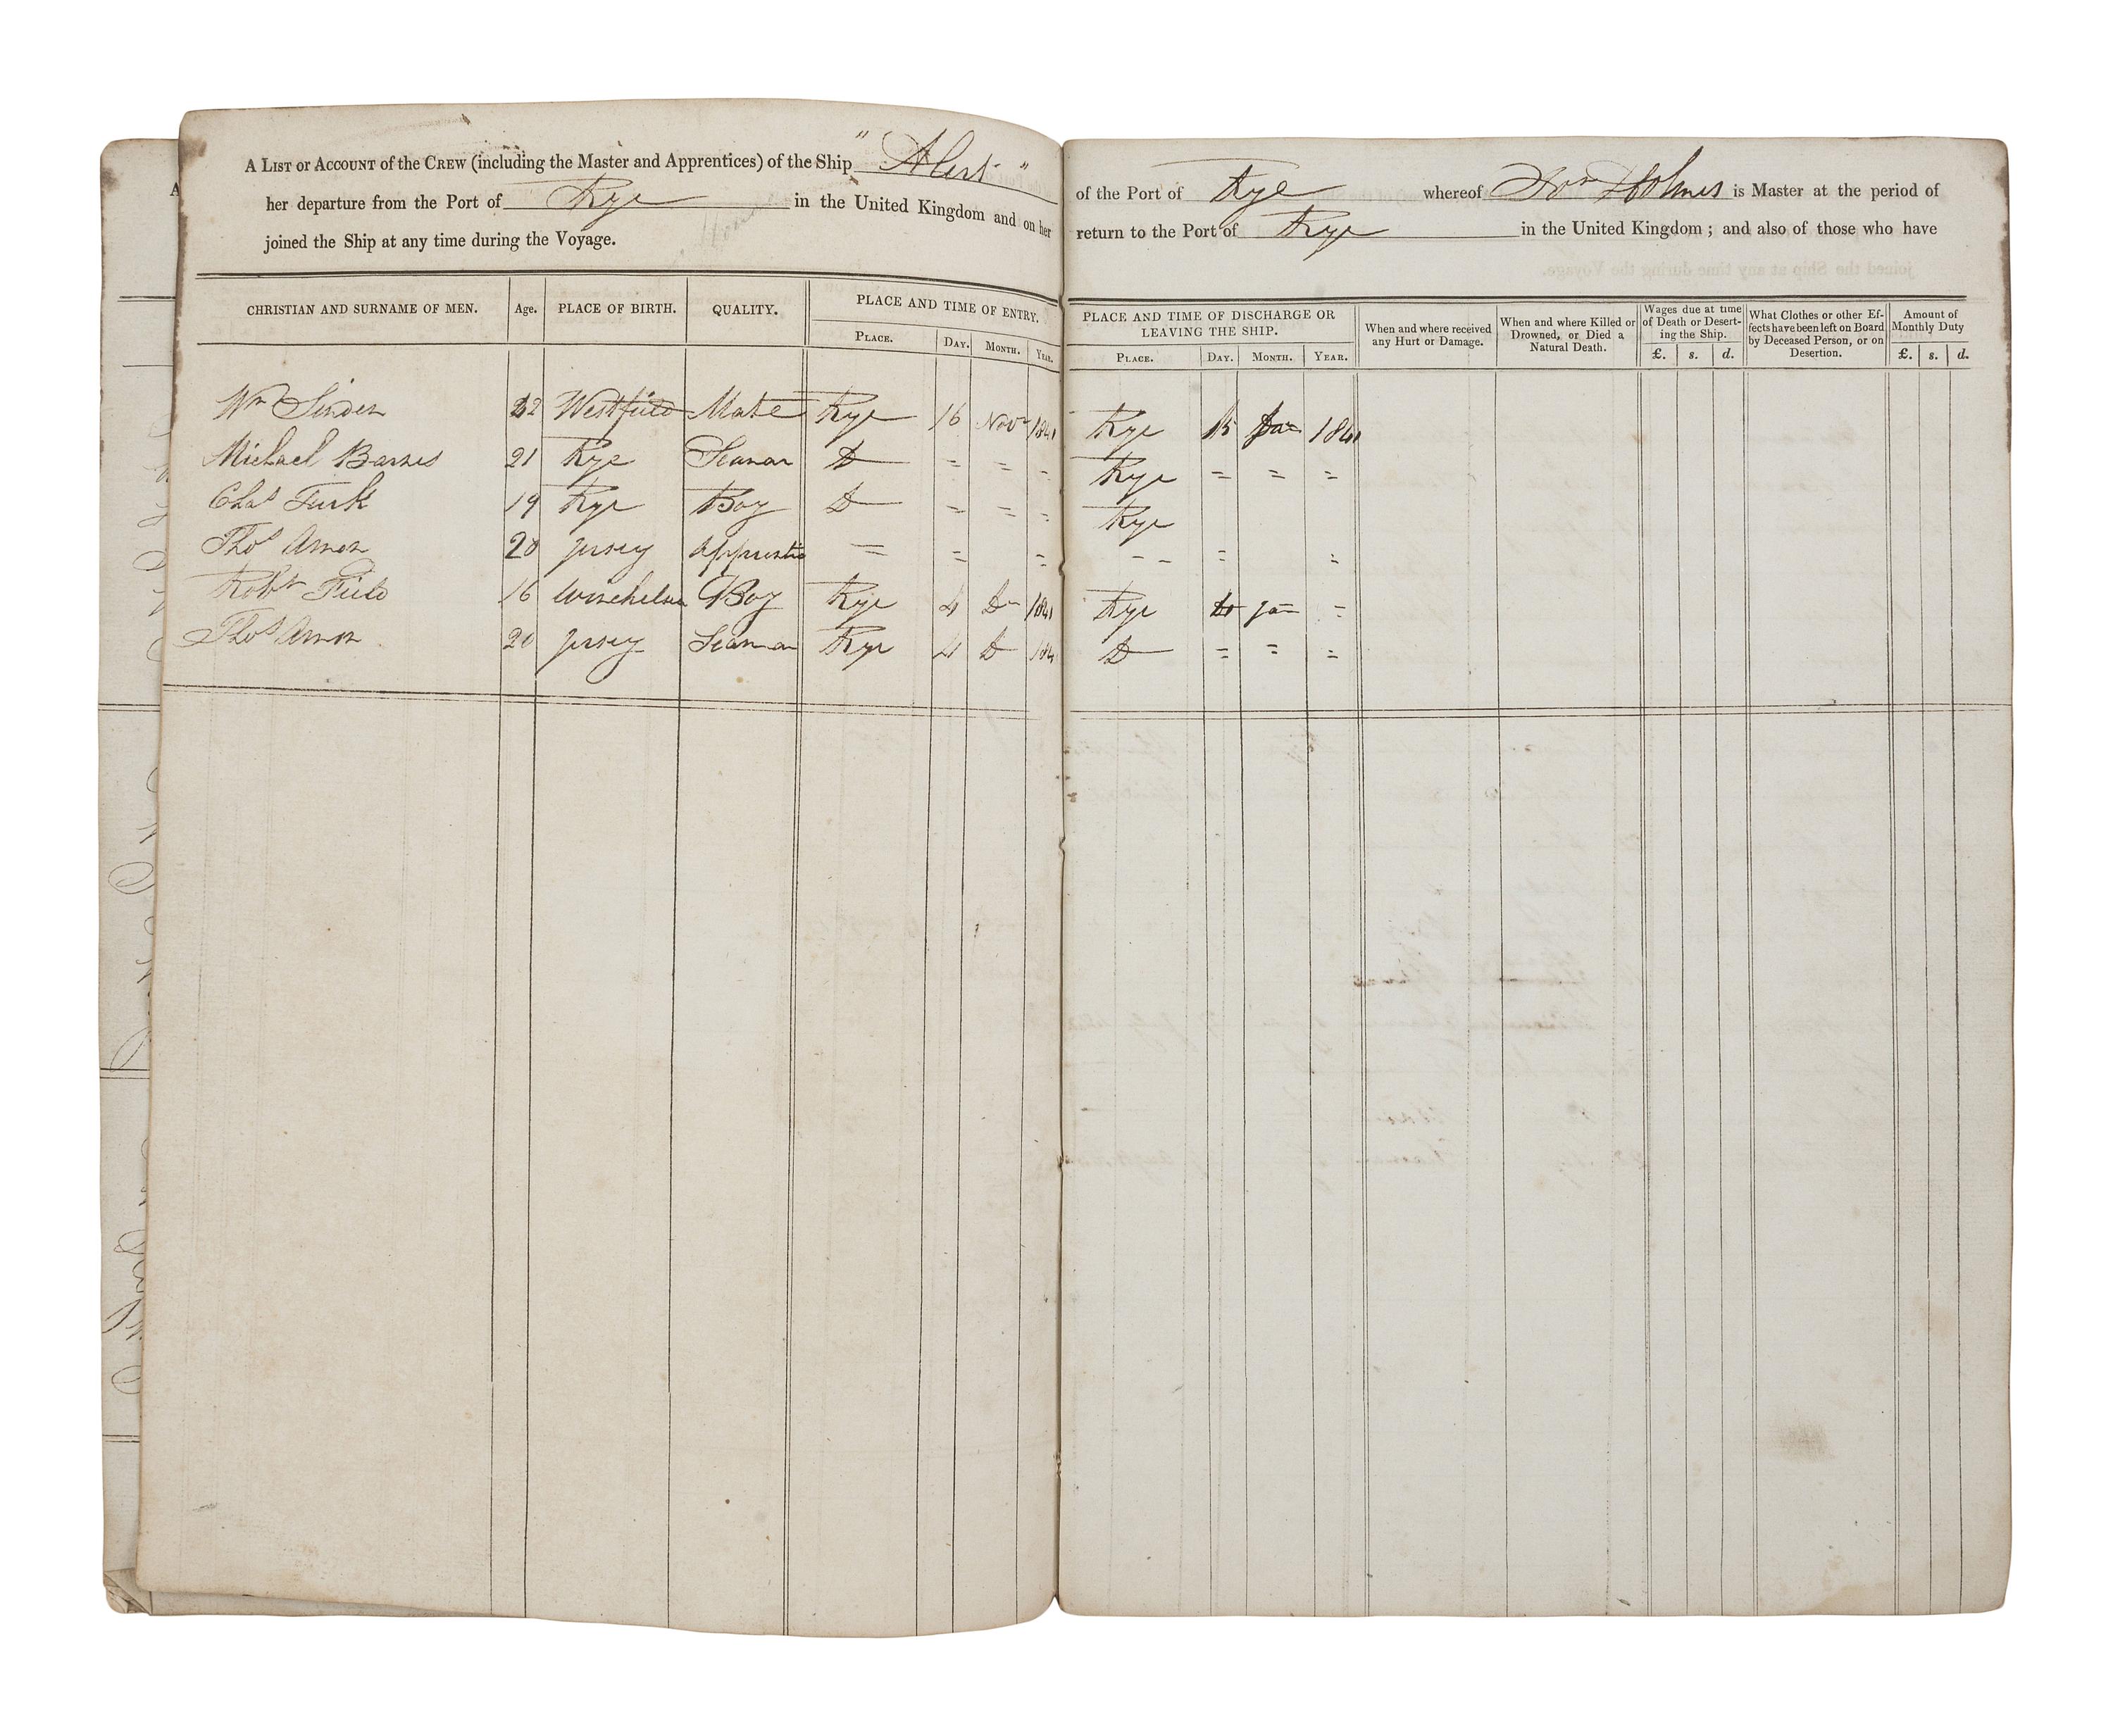 A LIST OR ACCOUNT of the CREW (including the Master and Apprentices) of the Ship "Alert"
her departure from the Port of Rye in the United Kingdom and on her
joined the Ship at any time during the Voyage.
CHRISTIAN AND SURNAME OF MEN. Age. PLACE OF BIRTH. QUALITY. PLACE AND TIME OF ENTRY.
PLACE. DAY. MONTH. YEAR.
Wm Sinden 22 Westfield Mate Rye 16 Novr 1841
Michael Barnes 21 Rye Seaman Do = = =
Chas Turk 19 Rye Boy Do = = =
Thos Amon 20 Jersey Apprentice = = =
Robt Field 16 Winchelsea Boy Rye 4 Do 1841
Thos Amon 20 Jersey Seaman Rye 4 Do 184
of the Port of Rye whereof Wm Holmes is Master at the period of
return to the Port of Rye in the United Kingdom ; and also of those who have
PLACE AND TIME OF DISCHARGE OR LEAVING THE SHIP. When and where received any Hurt or Damage. When and where Killed or Drowned, or Died a Natural Death. Wages due at time of Death or Deserting the Ship. What Clothes or other Effects have been left on Board by Deceased Person, or on Desertion. Amount of Monthly Duty
PLACE. DAY. MONTH. YEAR. £. s. d. £. s. d.
Rye 15 Jan 1841
Rye = = =
Rye
- - = =
Rye Jan =
Do = = =